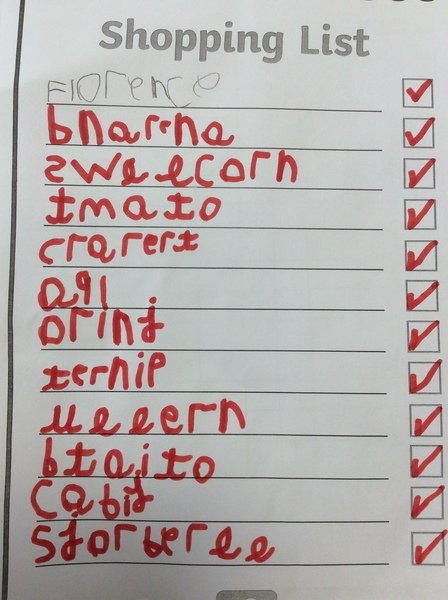 Shopping List
Florence
bnarrna
sweecorn
tmato
crarert
aql
orinj
ternip
ueeern
btaito
Cabij
Storberee